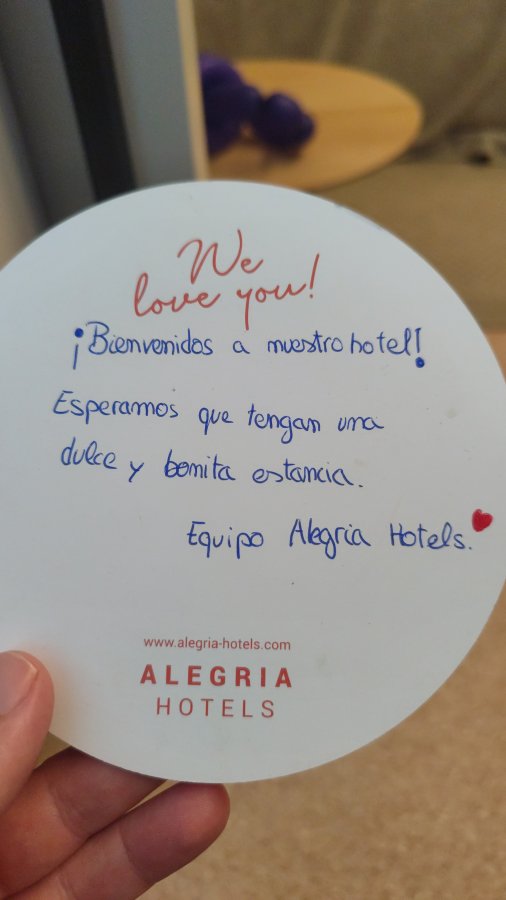 We
love you!
¡Bienvenidos a nuestro hotel!
Esperamos que tengan una
dulce y bonita estancia.
Equipo Alegria Hotels.
www.alegria-hotels.com
ALEGRIA
HOTELS